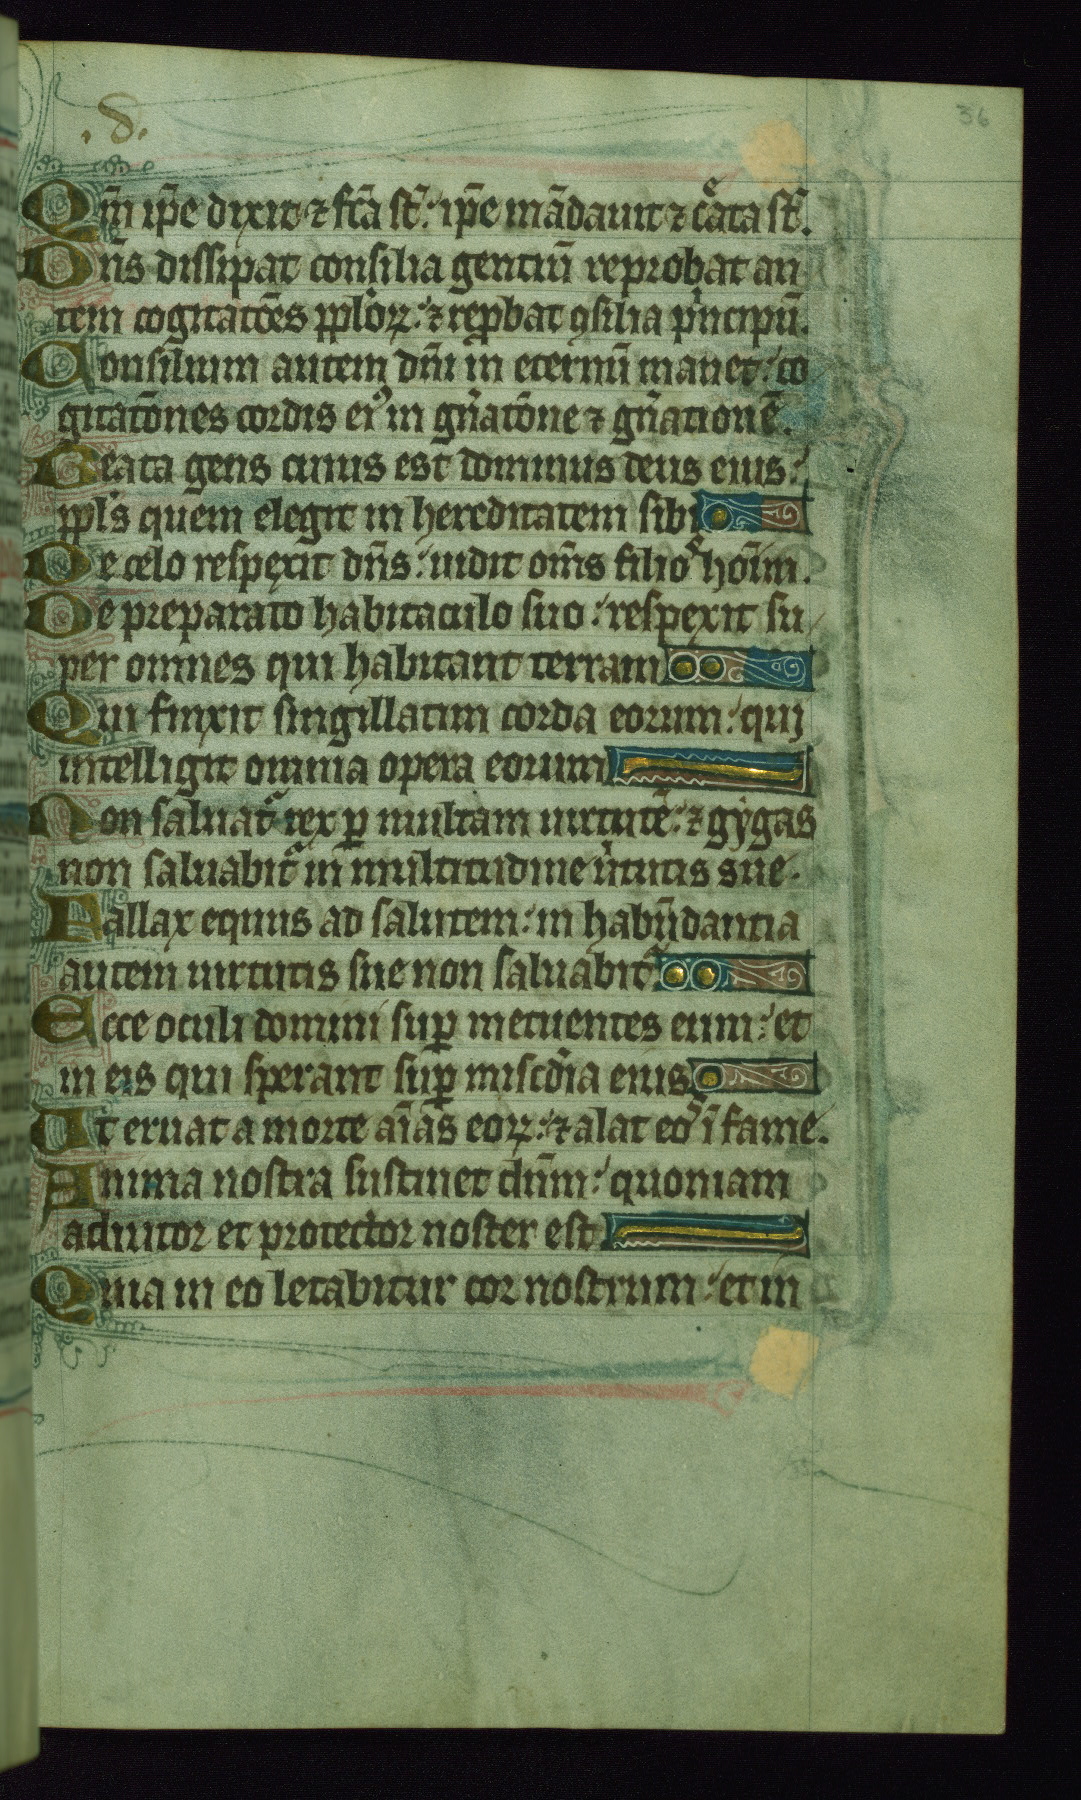 .d.
36
Qm̄ ip̄e dixit ⁊ fc̄a st̄: ip̄e mādauit ⁊ cᵉata st̄.
Dn̄s dissipat consilia gentiū reprobat au
tem cogitatōes pplōꝝ: ⁊ rep̱bat ꝯsilia pⁱncipū.
Consilium autem dn̄i in eternū manet: co
gitatōnes cordis eiꝰ in gn̄atōne ⁊ gn̄ationē.
Beata gens cuius est dominus deus eius:
ppl̄s quem elegit in hereditatem sibi
De celo respexit dn̄s: uidit om̄s filioˢ hoīm.
De preparato habitaculo suo: respexit su
per omnes qui habitant terram
Qui finxit singillatim corda eorum: qui
intelligit omnia opera eorum
Non saluat᷑ rex ꝑ multam uirtutē: ⁊ gygas
non saluabit᷑ in multitudine uⁱtutis sue.
Fallax equus ad salutem: in habūdantia
autem uirtutis sue non saluabit᷑
Ecce oculi domini suꝑ metuentes eum: et
in eis qui sperant suꝑ misc̄dia eius
Ut eruat a morte aīas eoꝝ: ⁊ alat eoˢ ī fame.
Anima nostra sustinet dn̄m: quoniam
adiutor et protector noster est
Quia in eo letabitur cor nostrum: et in